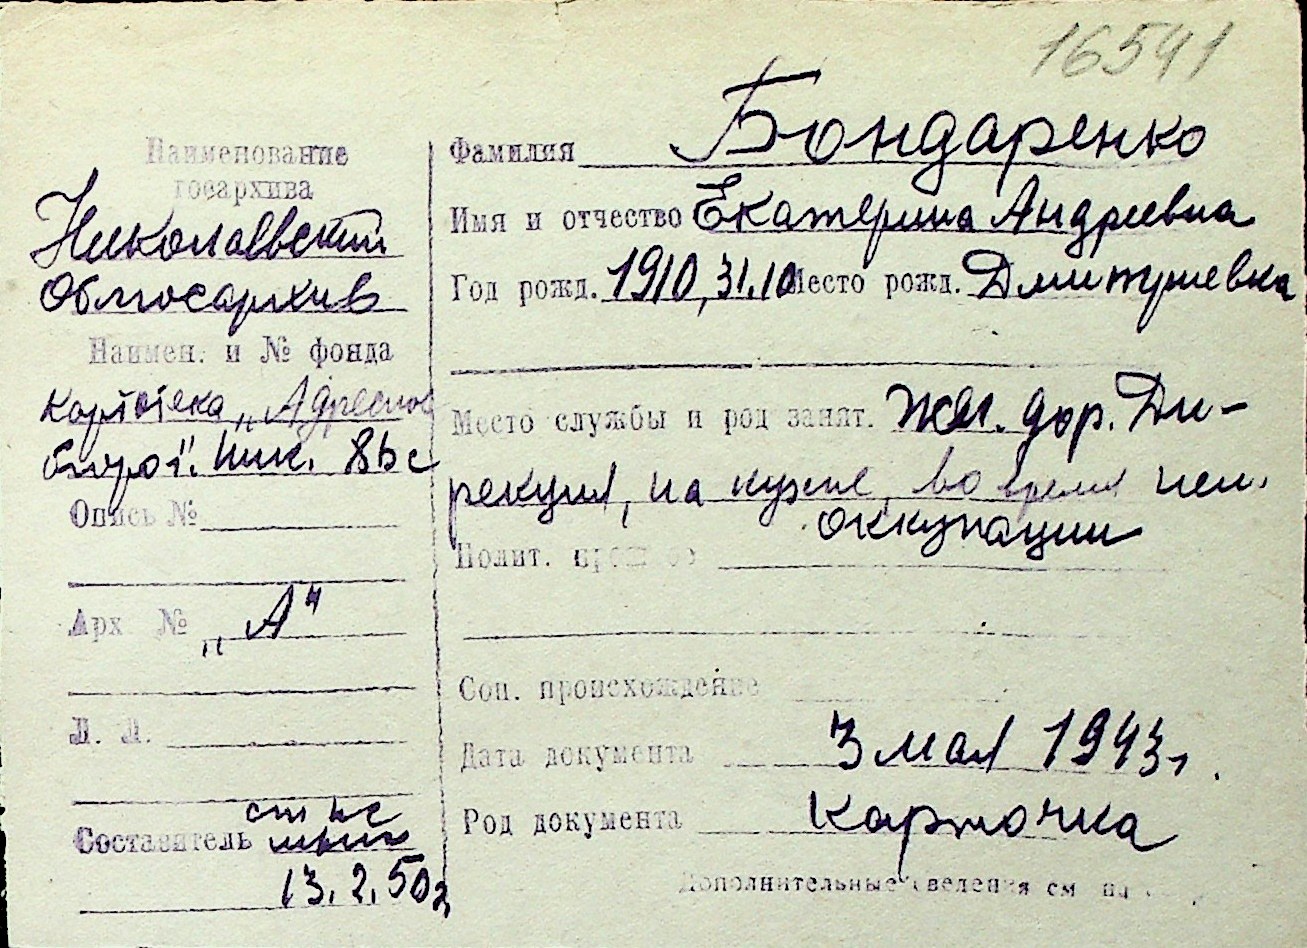 16541
Наименование
госархива
Николаевский
Облгосархив
Наимен. и № фонда
картотека „Адресное
бюро". Ник.
Опись №
Арх № „А"
Л. Л.
Составитель
13.2.50г
Фамилия Бондаренко
Имя и отчество Екатерина Андреевна
Год рожд. 1910, 31.10 Место рожд. Дмитриевка
Место службы и род занят. Жел. дор. Ди-
рекция, на кухне, во время нем.
оккупации
Полит.
Соц. происхождение
Дата документа 3 мая 1943г.
Род документа карточка
Дополнительные сведения см на